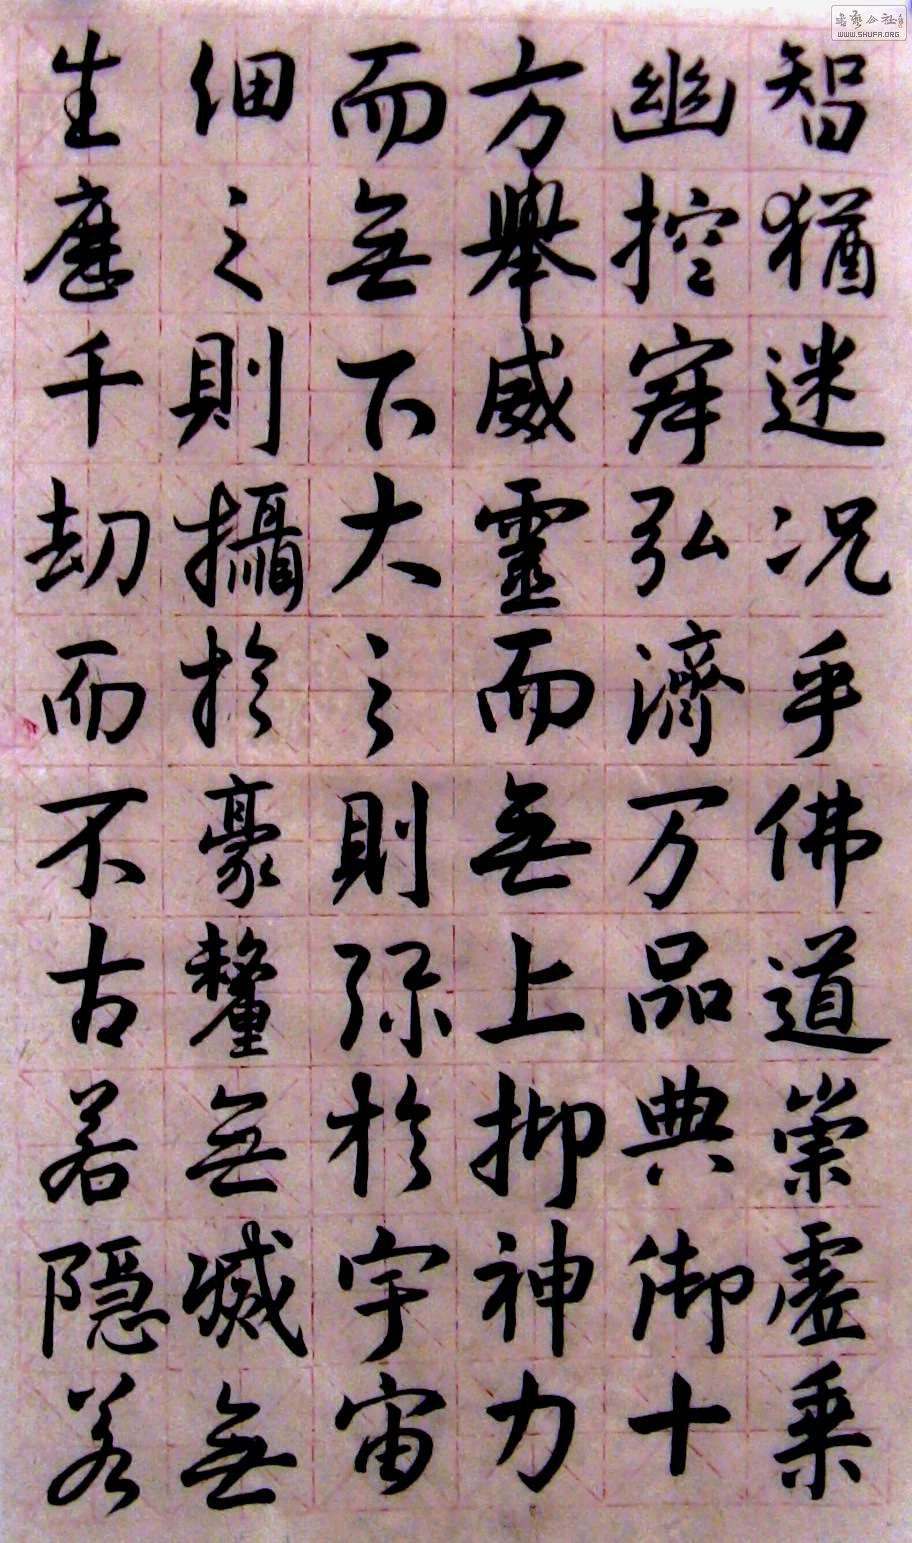 智猶迷况乎佛道崇虛乘
幽控寂弘濟万品典御十
方舉威靈而無上抑神力
而無下大之則弥於宇宙
細之則攝於豪釐無滅無
生歷千劫而不古若隱若
WWW.SHUFA.ORG